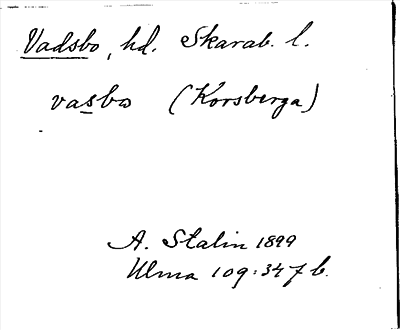 Vadsbo, hd. Skarab. l.
vasbo (Korsberga)
A. Stalin 1899
Ulma 109:347 b.